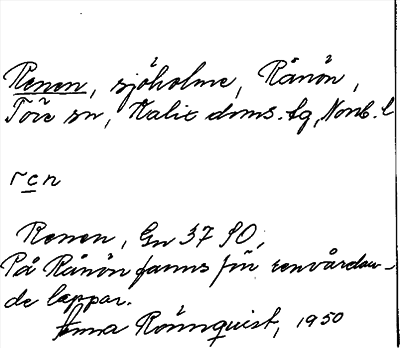 Renen, sjöholme, Rånön,
Töre sn, Kalix doms. tg, Norrb. l
ren
Renen, Gn 37 SO,
På Rånön fanns för renvårdan-
de lappar.
Anna Rönnquist, 1950